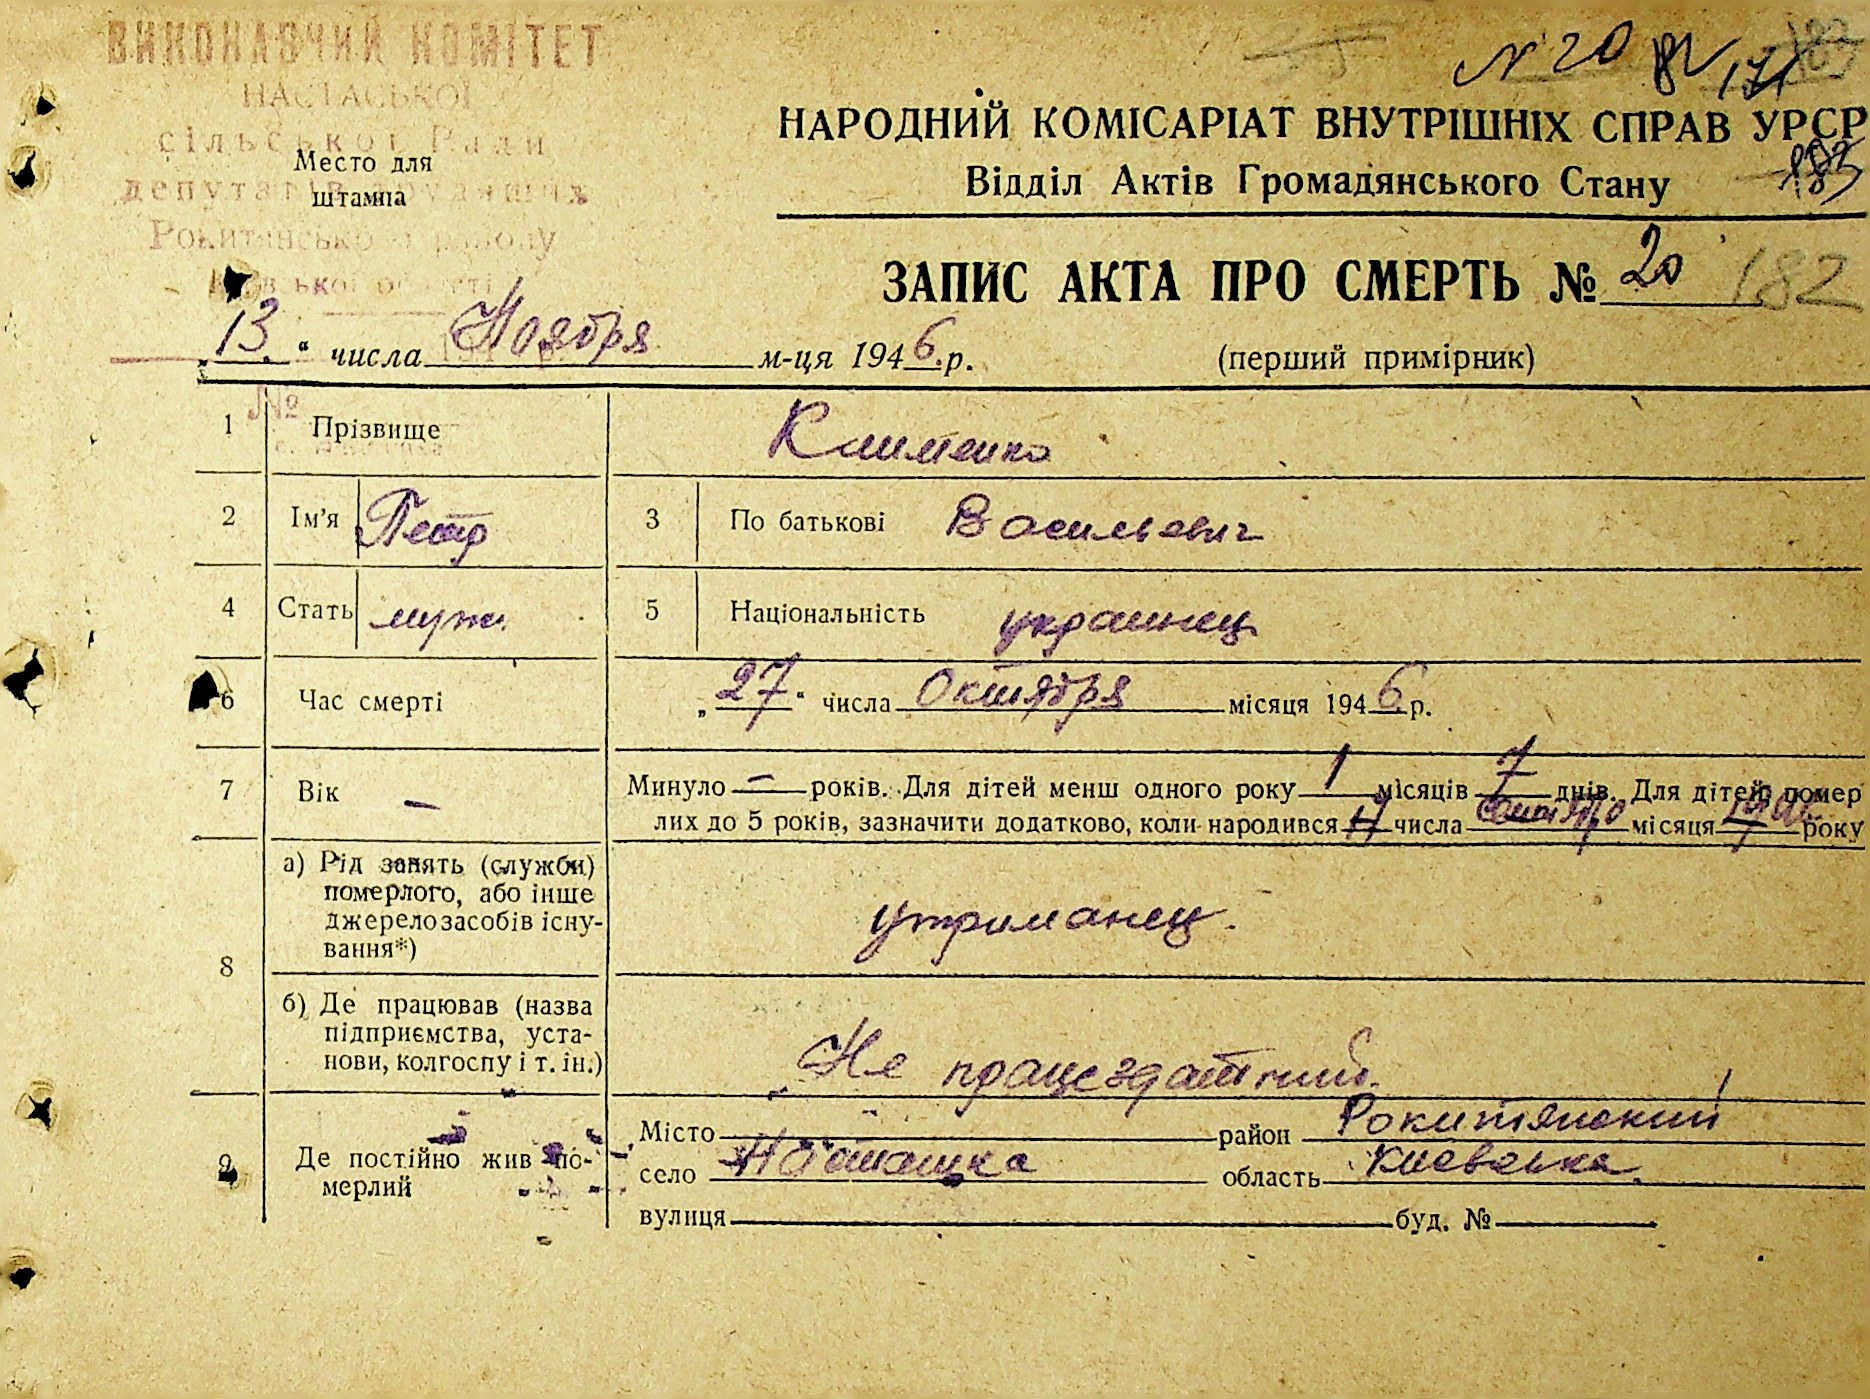 ВИКОНАВЧИЙ КОМІТЕТ
НАСТАСЬКОЇ
сільської Ради
депутатів трудящих
Рокитянського району
Київської області
Место для
штампа
№ 20 82 171 183
НАРОДНИЙ КОМІСАРІАТ ВНУТРІШНІХ СПРАВ УРСР
Відділ Актів Громадянського Стану 183
ЗАПИС АКТА ПРО СМЕРТЬ № 20 182
„13.“ числа Ноября м-ця 1946.р. (перший примірник)
№
1 Прізвище Клименко
2 Ім'я Петр 3 По батькові Васильевич
4 Стать муж. 5 Національність украинец
6 Час смерті „27“ числа Октября місяця 1946.р.
7 Вік — Минуло — років. Для дітей менш одного року 1 місяців 7 днів. Для дітей, помер
лих до 5 років, зазначити додатково, коли народився числа місяця 1946 року
8 а) Рід занять (служби)
померлого, або інше
джерело засобів існу-
вання*) утриманец.
б) Де працював (назва
підприємства, уста-
нови, колгоспу і т. ін.) Не працездатний.
9 Де постійно жив по-
мерлий
Місто район Рокитянский
село Насташка область Киевська.
вулиця буд. №